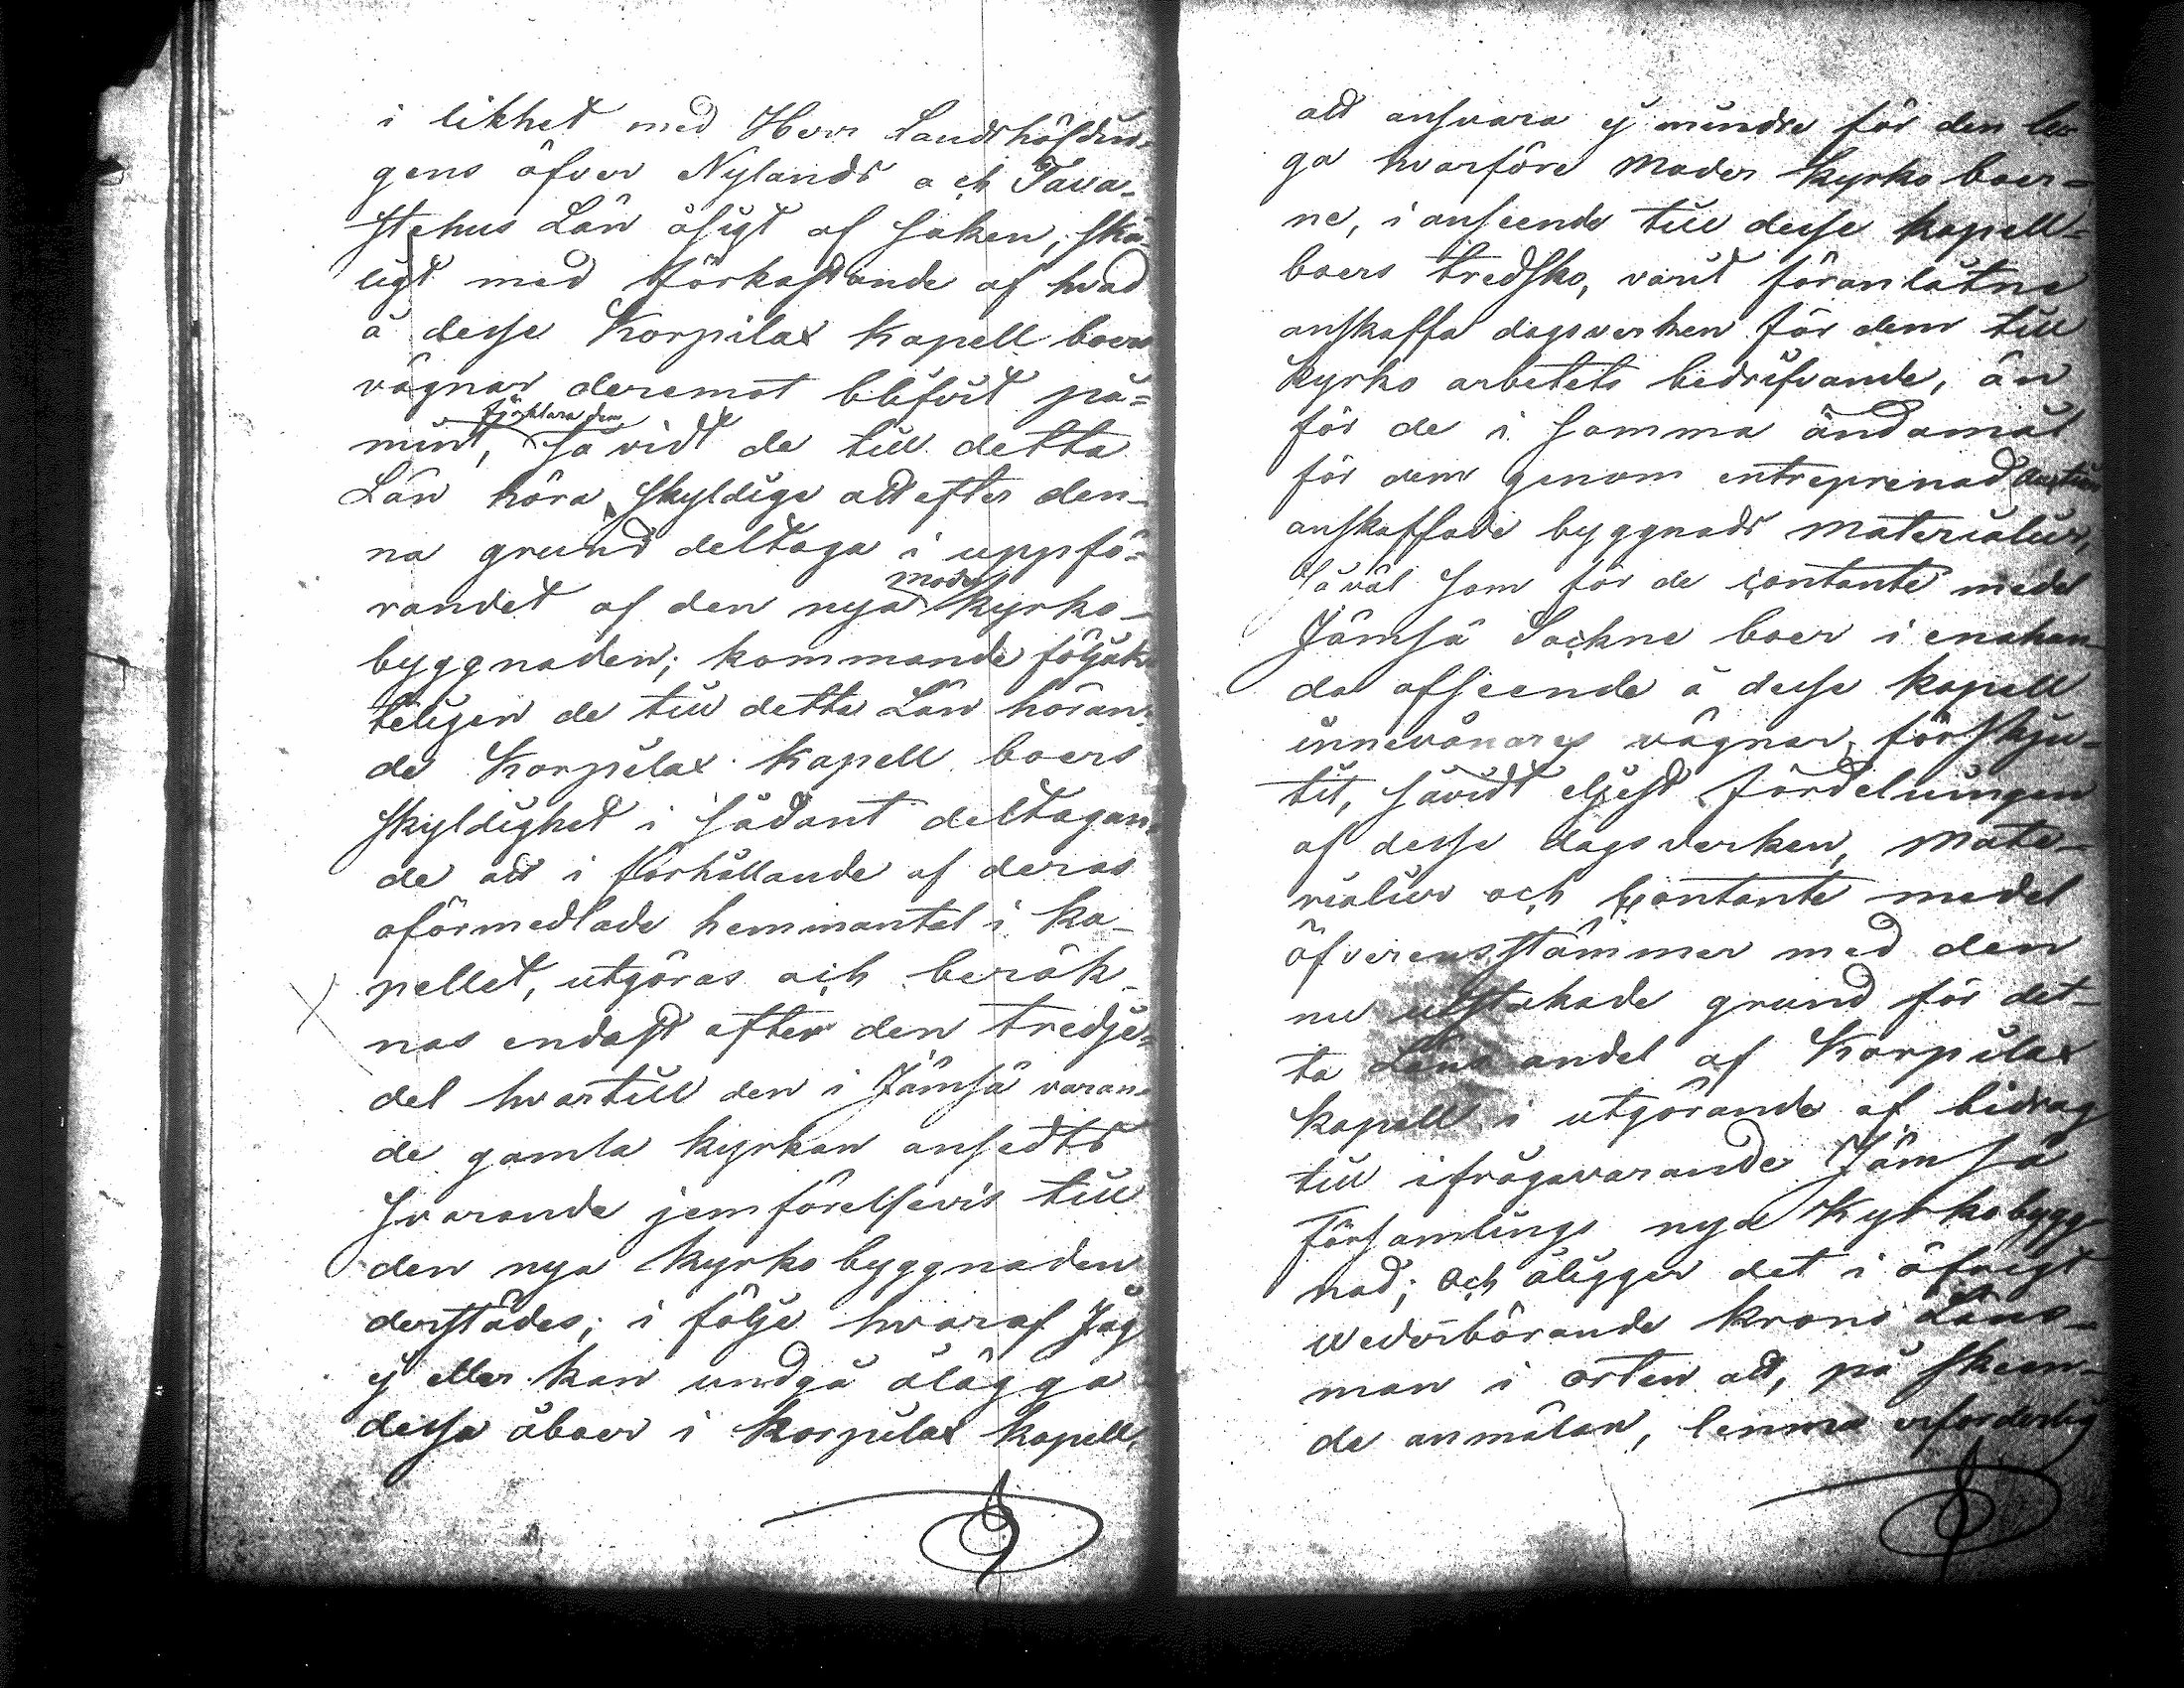 i likhet med Herr Landshöfdin-
gens öfver Nylands och Tava-
stehus Län åsigt af saken, skä-
ligt med förkastande af hvad
å desse Korpilax Kapell boers
vägnar deremot blifvit på-
mint, förklara dem så vidt de till detta
Län höra, skyldige att efter den-
na grund deltaga i uppfö-
randet af den nya Moder kyrko-
byggnaden; kommande följakt
teligen de till detta Län höran-
de Korpilax Kapell boers
skyldighet i sådant deltagan-
de att i förhållande af deras
oförmedlade hemmantal i Ka-
pellet, utgöras och beräk-
nas endast efter den tredje-
del hvartill den i Jämsä varan-
de gamla kyrkan ansedts
svarande jemförelsevis till
den nya kyrko byggnaden
derstädes; i följe hvaraf Jag
ej eller kan undgå ålägga
dessa åboer i Korpilax Kapell,
att ansvara ej mindre för den le-
ga hvarföre Moder Kyrko boer-
ne, i anseende till desse Kapell-
boers tredsko, varit föranlåtne
anskaffa dagsverken för dem till
Kyrko arbetets bedrifvande, än
för de i samma ändamål
för dem genom entreprenad Auction
anskaffade byggnads Materialier,
så väl som för de contante medel
Jämsä Sockne boer i enahan-
da afseende å desse Kapell
innevånares vägnar förskju-
tit, såvidt eljest fördelningen
af desse dagsverken, Mate-
rialier och contante medel
öfverensstämmer med den
nu utstakade grund för det-
ta Läns andel af Korpilax
Kapell i utgörande af bidrag
till ifrågavarande Jämsä
Församlings nya Kyrkobygg-
nad; Och åligger det i öfrigt
Wederbörande Krono Läns-
man i orten att, på skeen-
de anmälan, lemna erforderlig